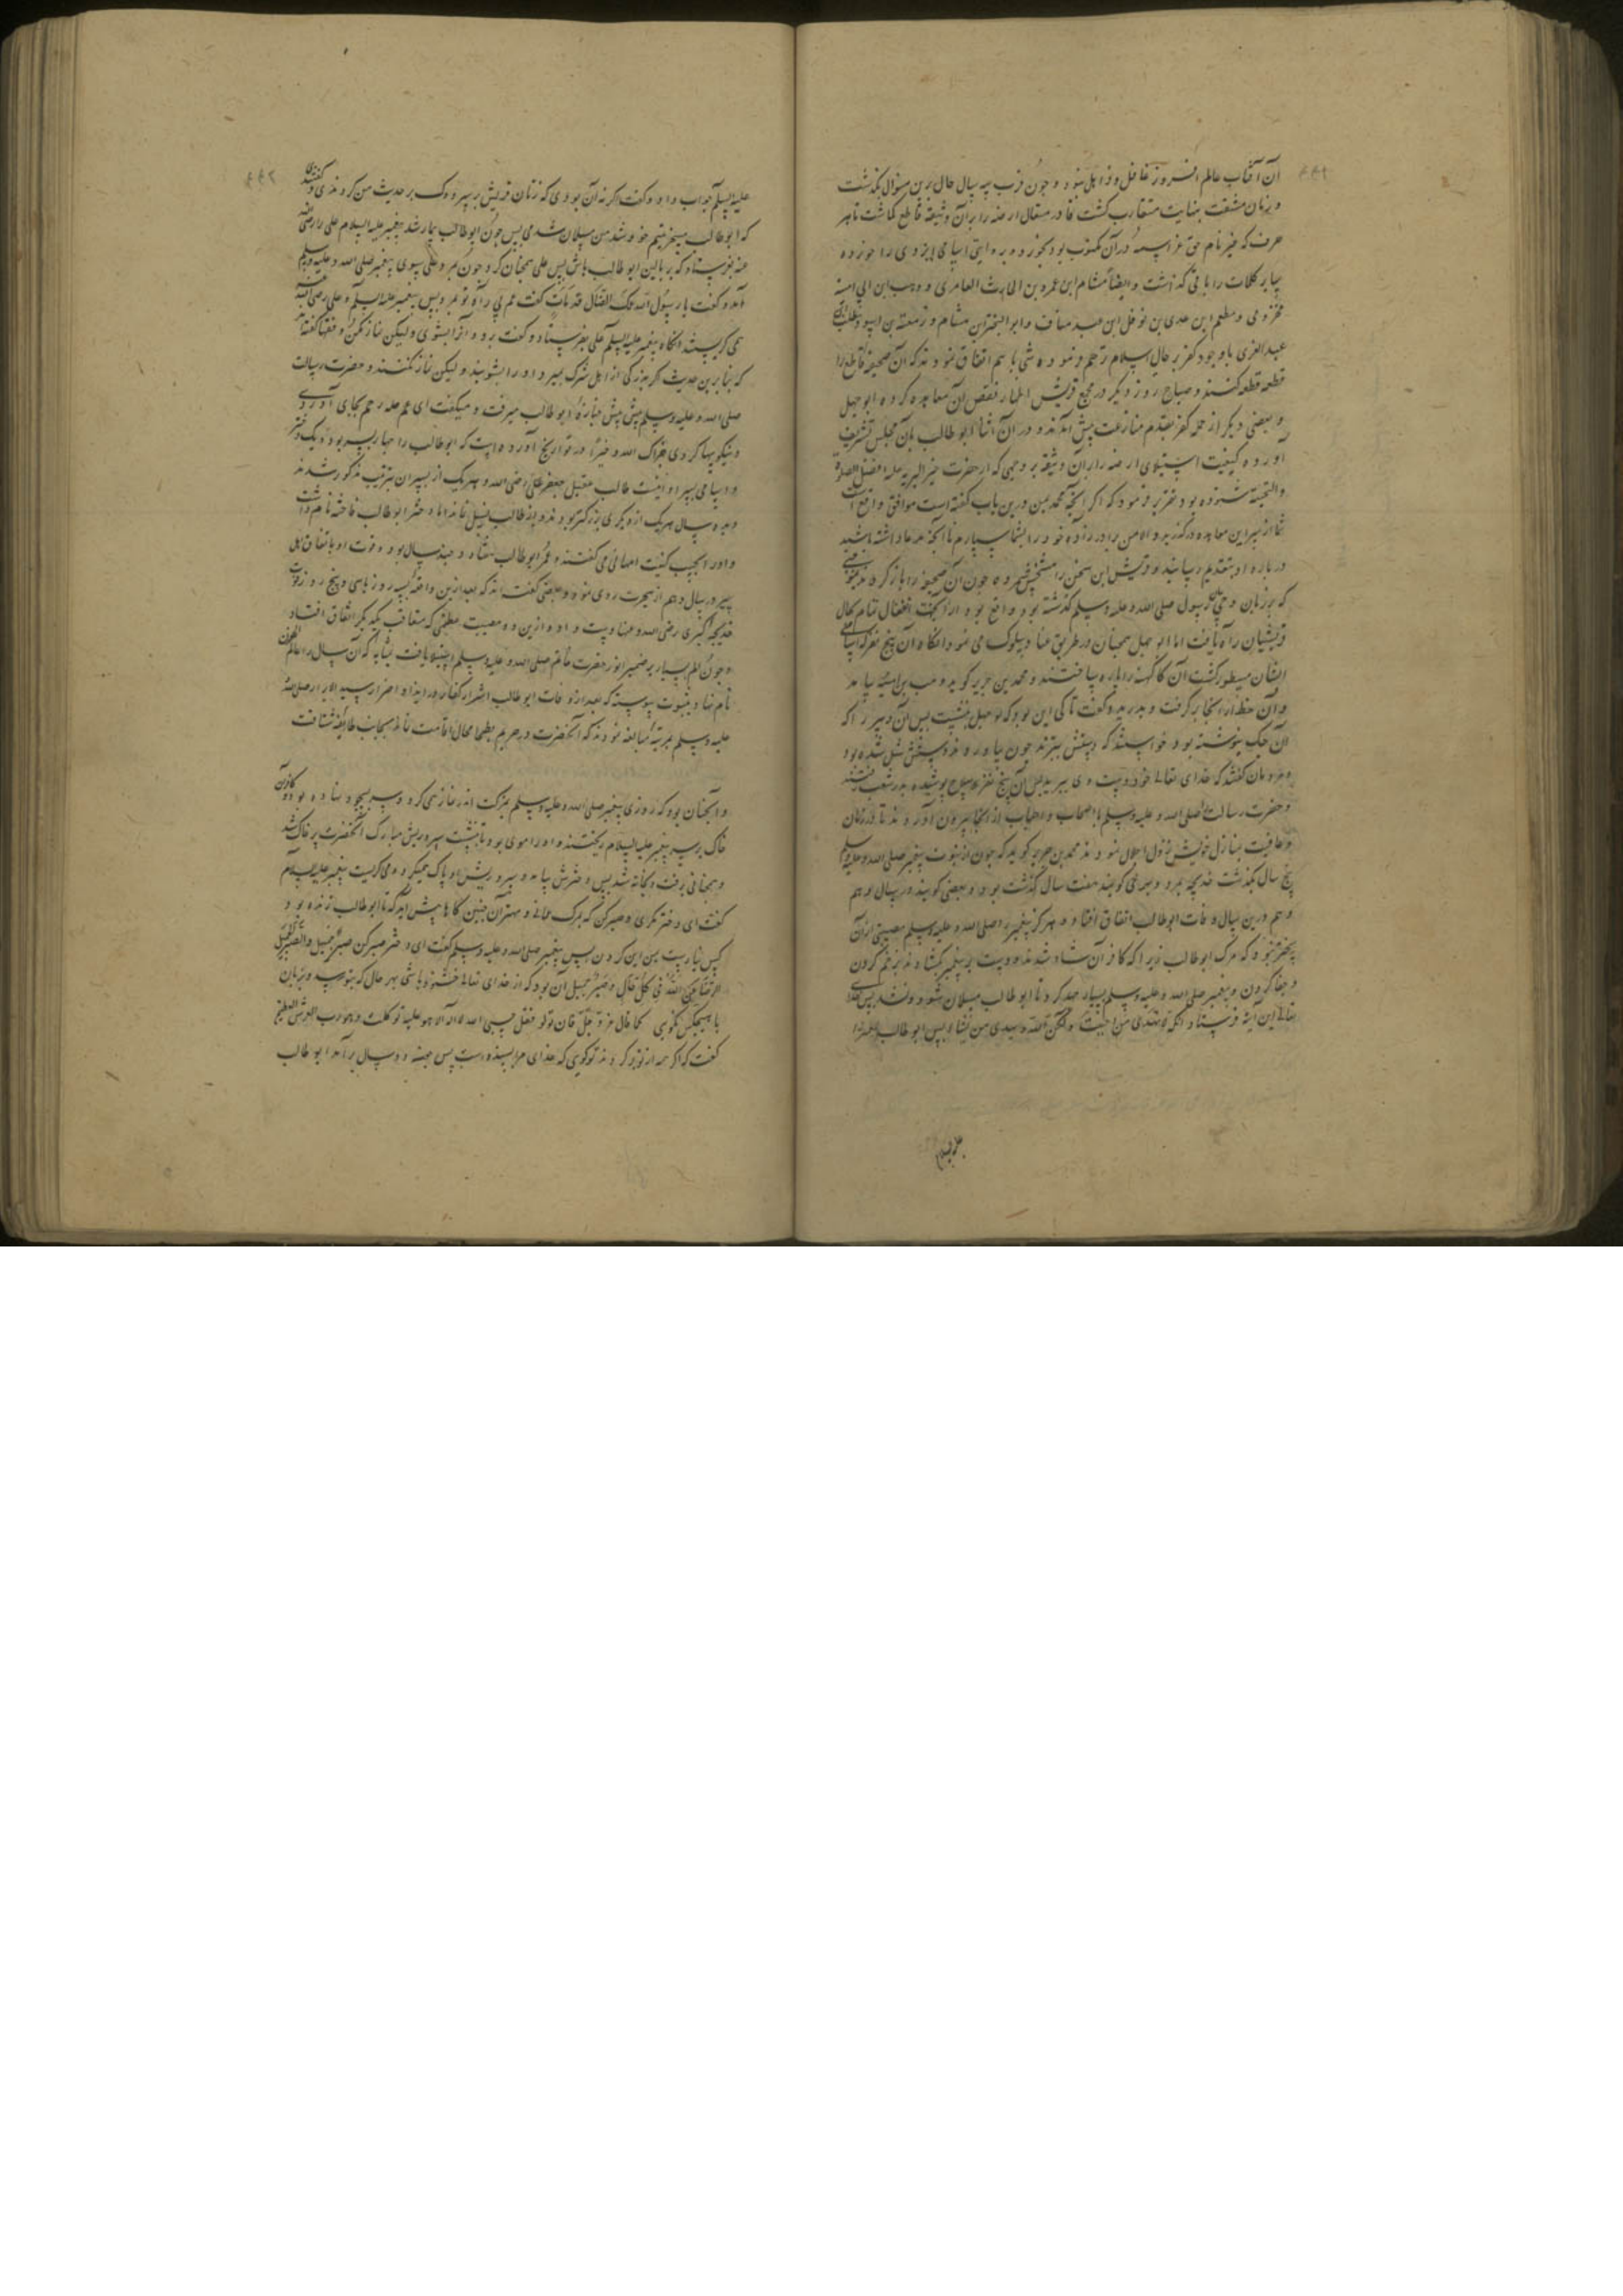 آن آفتاب عالم افروز غافل و ذاهل نمود و چون قرب سه سال حال برین منوال بگذشت
و زمان مشقت بغایت متقارب گشت قادر متعال ارضه را بر آن وثیقه قاطع گماشت تا هر
حرف که غیر نام حق عز اسمه در آن مکتوب بود بخورد و بروایتی اسامی ایزدی را خورده
سایر کلمات را باقی گذاشت و ایضا هشام ابن عمرو بن الحارث العامری و زهیر ابن ابی امیه
مخزومی و مطعم ابن عدی بن نوفل ابن عبد مناف و ابو البختر ابن هشام و زمعة بن اسود
عبد العزی باوجود کفر بر حال اسلام ترحم نموده شبی با هم اتفاق نمودند که آن صحیفه قاطع را
قطعه قطعه کنند و صباح روز دیگر در مجمع قریش اظهار نقض آن معاهده کرده ابو جهل
و بعضی دیگر از جمله کفر بقدم منازعت پیش آمدند و در آن اثنا ابو طالب بآن مجلس تشریف
آورده کیفیت استیلای ارضه را بر آن وثیقه بر وجهی که از حضرت خیر البریه علیه افضل الصلوة
والتحیه شنوده بود تقریر فرمود که اگر آنچه محمد من درین باب گفته است موافق واقع است
شما از سر این معاهده درگذرید و الا من برادرزاده خود را بشما سپارم تا آنچه مدعا داشته باشید
درباره او بتقدیم رسانید و قریش این سخن را مستحسن شمرده چون آن صحیفه را باز کردند
که بر زبان وحی رسول صلی الله علیه وسلم گذشته بود واقع بود از آن جهت انفعال تمام بحال
قریشیان راه یافت اما ابو جهل همچنان در طریق عناد سلوک می نمود آنگاه آن پنج نفر که اسامی
ایشان مسطور گشت آن کاغذ را پاره ساختند و محمد بن جریر گوید
و آن خط از آنجا برگرفت و بدرید و گفت تا کی این بود که بو جهل بنشست پس آن دبیر را که
آن چک نوشته بود خواستند که دستش ببرند چون بیاوردند دستش شل شده بود
مردمان گفتند که خدای تعالی خود دست وی ببرید پس آن پنج نفر سلاح پوشیده بدر شعب رفتند
و حضرت رسالت صلی الله علیه وسلم با اصحاب و احباب از آنجا بیرون آوردند تا در زمان
و عافیت بمنازل خویش نزول اجلال نمودند محمد بن جریر گوید که چون از نبوت پیغمبر صلی الله علیه وسلم
پنج سال بگذشت خدیجه بمرد و بعضی گویند هفت سال گذشته بود و بعضی گویند در سال دهم
و هم درین سال وفات ابوطالب اتفاق افتاد و هرگز پیغمبر را صلی الله علیه وسلم مصیبتی از آن
سختر نبود که مرگ ابو طالب زیرا که کافران شاد شدند و دست بر پیغمبر گشادند بزخم کردن
و جفا کردن و پیغمبر صلی الله علیه وسلم بسیار جهد کرد تا ابو طالب مسلمان شود و نشد پس خدا
تعالی این آیه فرستاد انک لا تهدی من احببت ولکن الله یهدی من یشاء پس ابو طالب
علیه السلام
علیه السلام جواب داد و گفت اگر نه آن بودی که زنان قریش بر سر دوک بر حدیث من کردندی و گفتندی
که ابو طالب مسلمان شدمی پس چون ابو طالب بیمار شد پیغمبر علیه السلام علی را رضی الله
عنه بفرستاد که بر بالین ابو طالب باش پس علی همچنان کرد چون بمرد علی سوی پیغمبر صلی الله علیه وسلم
آمد و گفت یا رسول الله عمک الضال قد مات گفت عم بی راه تو بمرد پس پیغمبر علیه السلام و علی رضی الله عنه
همی گریستند آنگاه پیغمبر علیه السلام علی بفرستاد و گفت برو و او را بشوی و لیکن نماز مکن و فقها گفته اند
که بنا برین حدیث اگر بزرگی از اهل شرک بمیرد او را بشویند و لیکن نماز نکنند و حضرت رسالت
صلی الله علیه وسلم پیش پیش جنازه ابو طالب میرفت و میگفت ای عم صله رحم بجای آوردی
و نیکوییها کردی جزاک الله خیرا در تواریخ آورده است که ابو طالب را چهار پسر بود و یک دختر
و اسامی پسر او اینست طالب عقیل جعفر علی رضی الله و هر یک از پسران بترتیب مذکور شدند
ده ده سال هر یک از دیگری بزرگتر بودند و از طالب نسل نماند اما دختر ابو طالب فاخته نام داشت
و او را بحسب کنیت ام هانی می گفتند و عمر ابو طالب هشتاد و چند سال بود و فوت او باتفاق اهل
سیر در سال دهم از هجرت روی نمود و بعضی گفته اند که بعد ازین واقعه بسه روز یا سی و پنج روز فوت
خدیجه کبری رضی الله عنها دست داده ازین دو مصیبت عظمی که متعاقب یکدیگر اتفاق افتاد
چون الم بسیار بر ضمیر انور حضرت خاتم صلی الله علیه وسلم استیلا یافت بمثابه که آن سال را عام الحزن
نام نهاد و بثبوت پیوسته که بعد از وفات ابو طالب اشرار کفار در ایذا و اضرار سید الابرار صلی الله
علیه وسلم بمرتبه مبالغه نمودند که آنحضرت در حریم بطحا مجال اقامت نماند بجانب طائف شتافت
و آنچنان بود که روزی پیغمبر صلی الله علیه وسلم بمزکت اندر نماز همی کرد و سر بسجود نهاده بود کافران
خاک بر سر پیغمبر علیه السلام ریختند و او را موی بود تا بپشت سر و ریش مبارک آنحضرت پر خاک شد
و همچنان برفت و بخانه شد پس دخترش بیامد و سر و ریش او پاک میکرد و می گریست پیغمبر علیه السلام
گفت ای دختر مگری و صبر کن که بمرگ عمان و مهتران چنین کارها پیش آید که تا ابو طالب زنده بود
کس نیارست بمن این کردن پس پیغمبر صلی الله علیه وسلم گفت ای دختر صبر کن صبر جمیل والصبر الجمیل
الرضا من الله فی کل حال و صبر جمیل آن بود که از خدای تعالی خشنود باشی بهر حال که بتو رسد و بزبان
با هیچکس نگویی کما قال عز و جل فان تولو فقل حسبی الله لا اله الا هو علیه توکلت وهو رب العرش العظیم
گفت که اگر همه از تو برگردند تو گوی که خدای مرا بسنده است پس دو سال برآمد ابو طالب